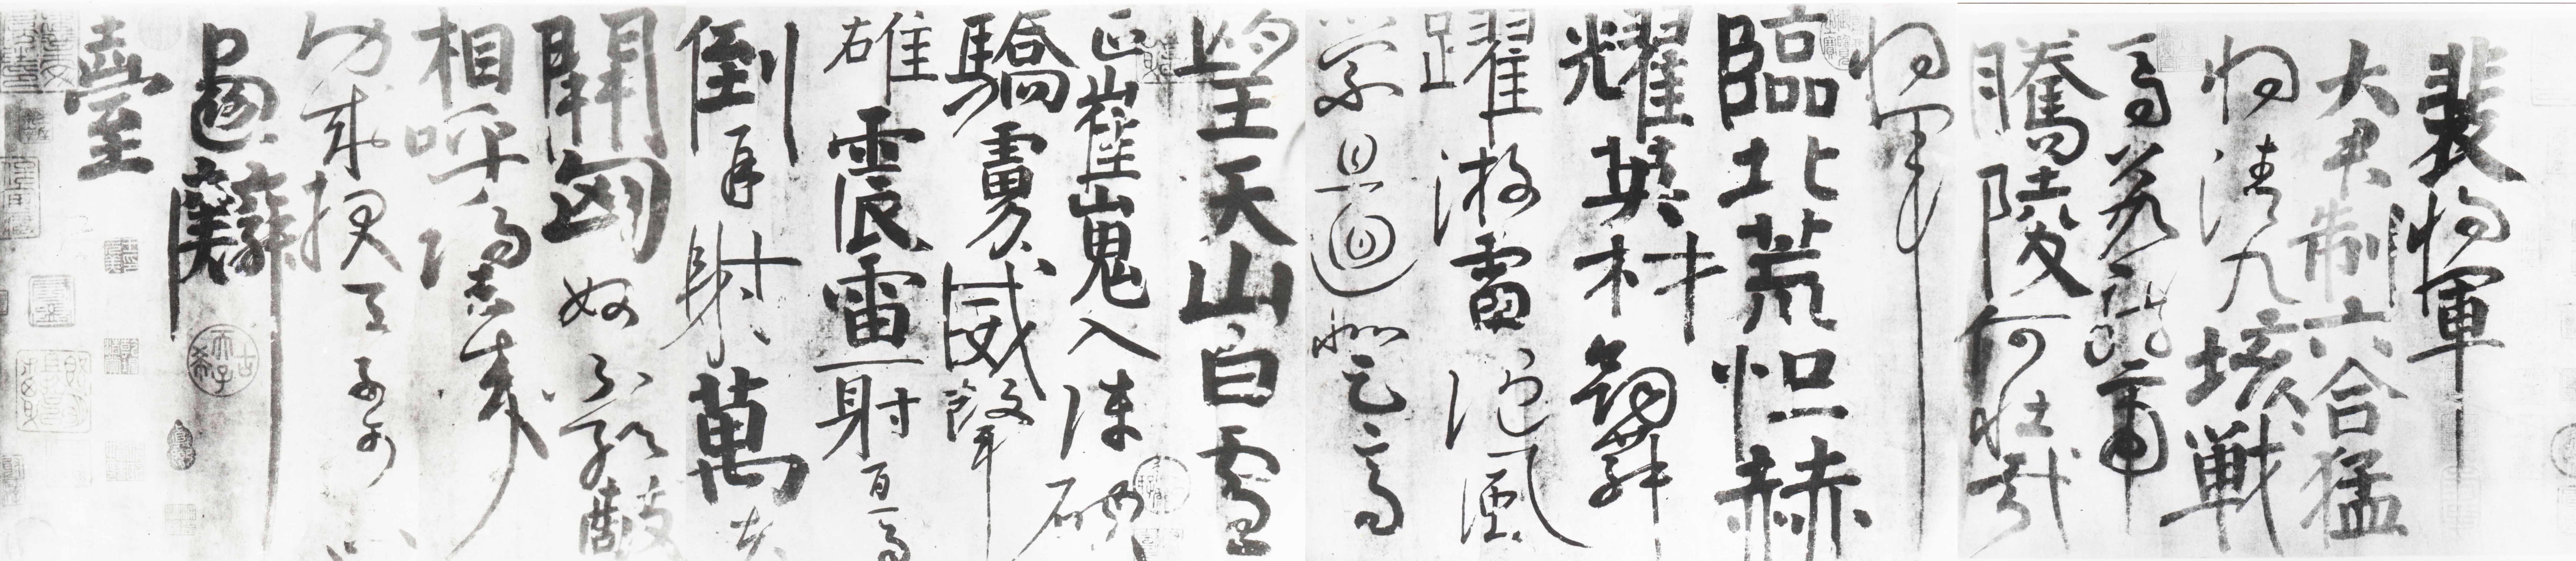 裴將軍
大君制六合猛
將清九垓戰
馬若龍虎
騰陵何壯哉
將軍
臨北荒恒赫
耀英材劍舞
躍游雷隨風
縈且迴登高
望天山白雪
正崔嵬入陣破
驕虜威聲
雄震雷一射百馬
倒再射萬夫
開匈奴不敢敵
相呼歸去來
功成報天子可以
畫麟
臺